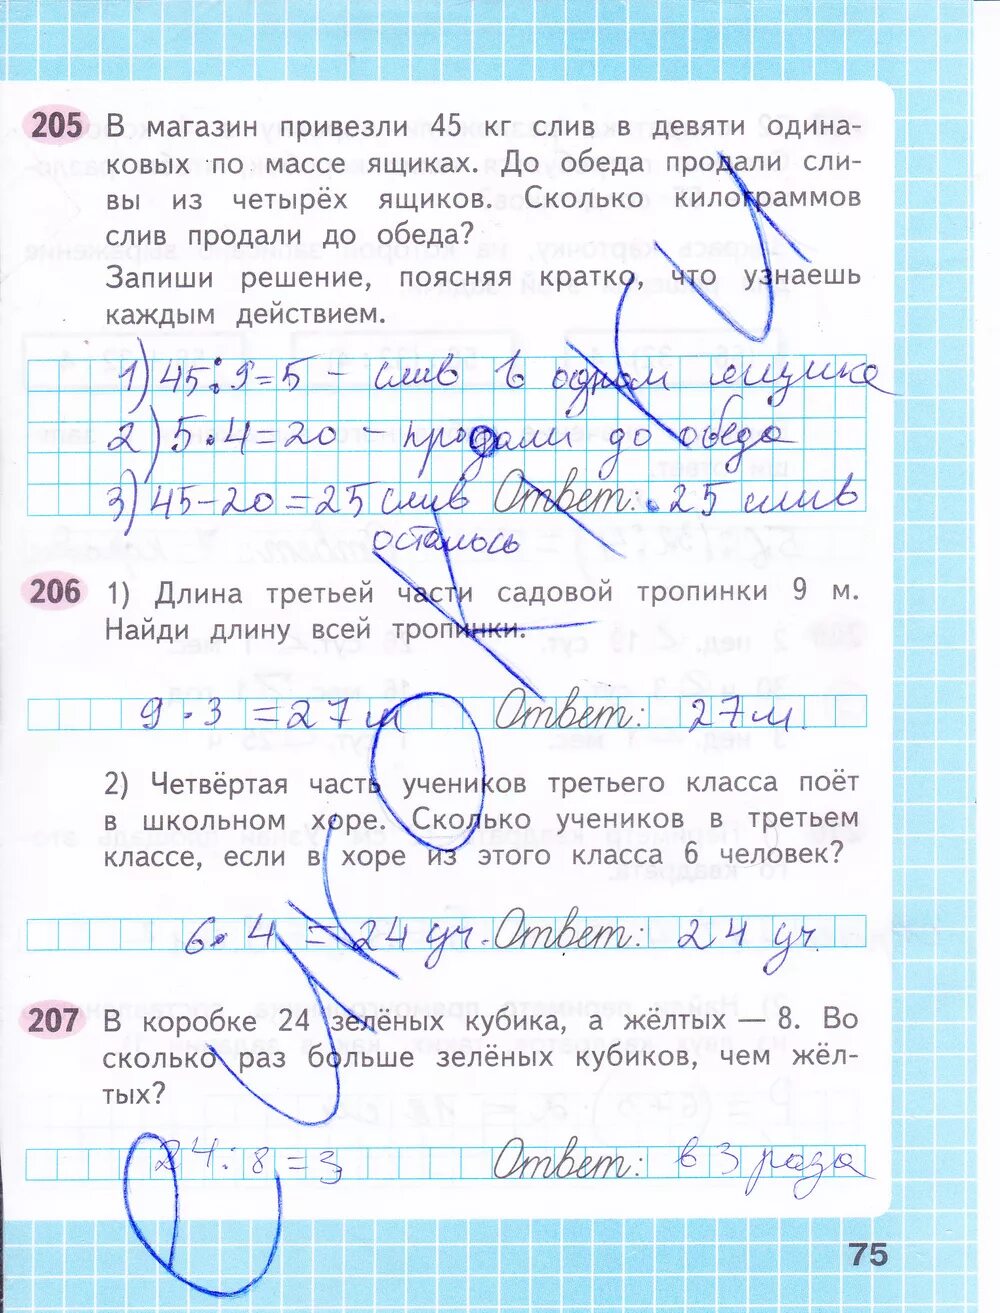 205 В магазин привезли 45 кг слив в девяти одина-
ковых по массе ящиках. До обеда продали сли-
вы из четырёх ящиков. Сколько килограммов
слив продали до обеда?
Запиши решение, поясняя кратко, что узнаешь
каждым действием.
1) 45:9=5 – слив в одном ящике
2) 5·4=20 – продали до обеда
3) 45-20=25 слив Ответ: 25 слив
осталось
206 1) Длина третьей части садовой тропинки 9 м.
Найди длину всей тропинки.
9·3 =27м Ответ: 27м.
2) Четвёртая часть учеников третьего класса поёт
в школьном хоре. Сколько учеников в третьем
классе, если в хоре из этого класса 6 человек?
6·4 = 24 уч. Ответ: 24 уч.
207 В коробке 24 зелёных кубика, а жёлтых — 8. Во
сколько раз больше зелёных кубиков, чем жёл-
тых?
24:8=3 Ответ: в 3 раза
75